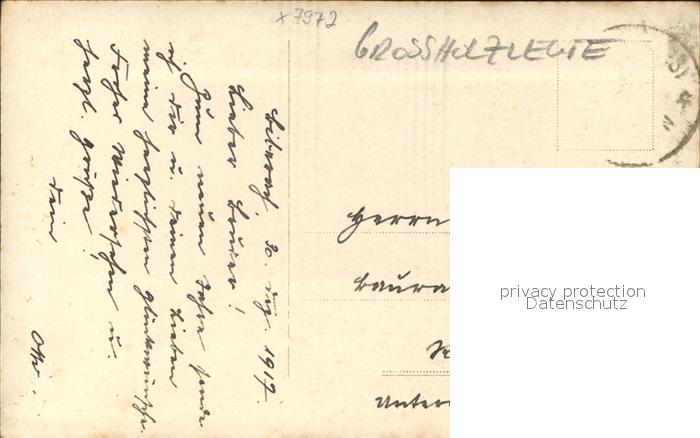 x 7972
GROSSHOLZLEUTE
Biberach, 30. Dez. 1917.
Lieber Bruder!
Zum neuen Jahre sende
ich dir u. deinen Lieben
meine herzlichsten Glückwünsche.
Frohes Wiedersehen u.
herzl. Grüße!
dein
Otto.
Herrn
Baura
Unter
privacy protection
Datenschutz